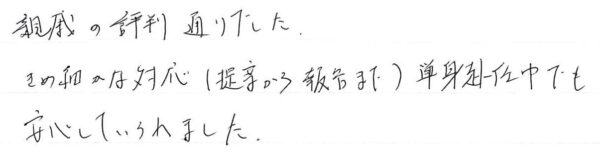 親戚の評判通りでした.
きめ細かな対応(提案から報告まで)単身赴任中でも
安心していられました.